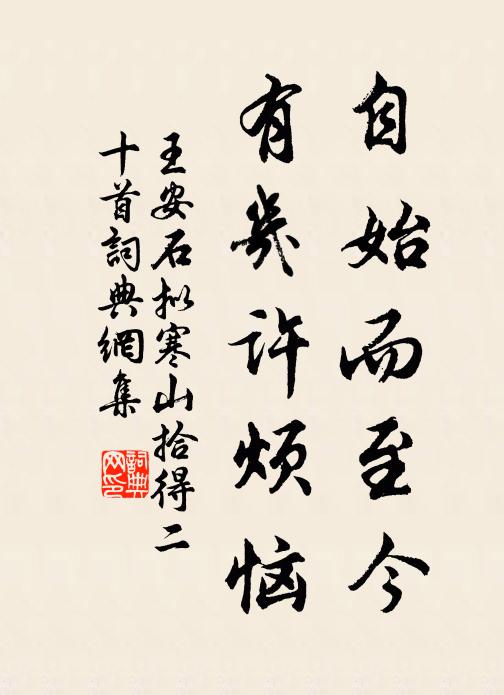 自始而至今
有幾许烦恼
王安石拟寒山拾得二
十首詞典網集
詞典网印